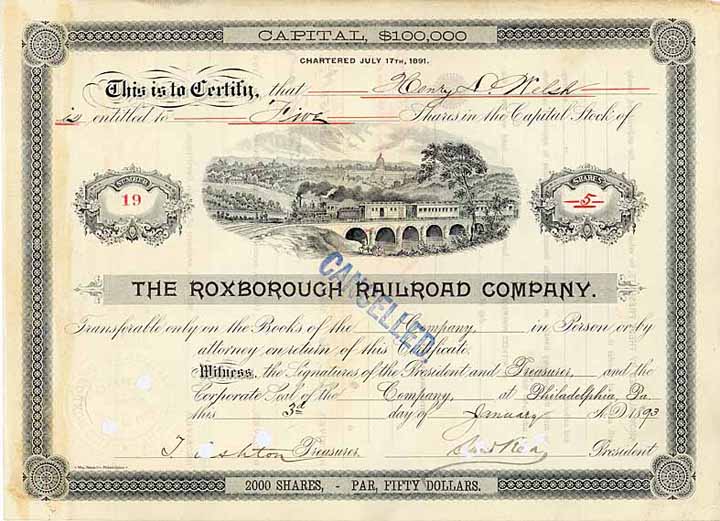 CAPITAL, $100,000
CHARTERED JULY 17TH, 1891.
This is to Certify, that Henry N Welsh
is entitled to Five Shares in the Capital Stock of
NUMBER
19
SHARES
5
CANCELLED.
THE ROXBOROUGH RAILROAD COMPANY.
Transferable only on the Books of the Company, in Person or by
attorney on return of this Certificate.
Witness, the Signatures of the President and Treasurer, and the
Corporate Seal of the Company, at Philadelphia, Pa.
this 3d day of January A.D. 1893
Treasurer. President
2000 SHARES, - PAR, FIFTY DOLLARS.